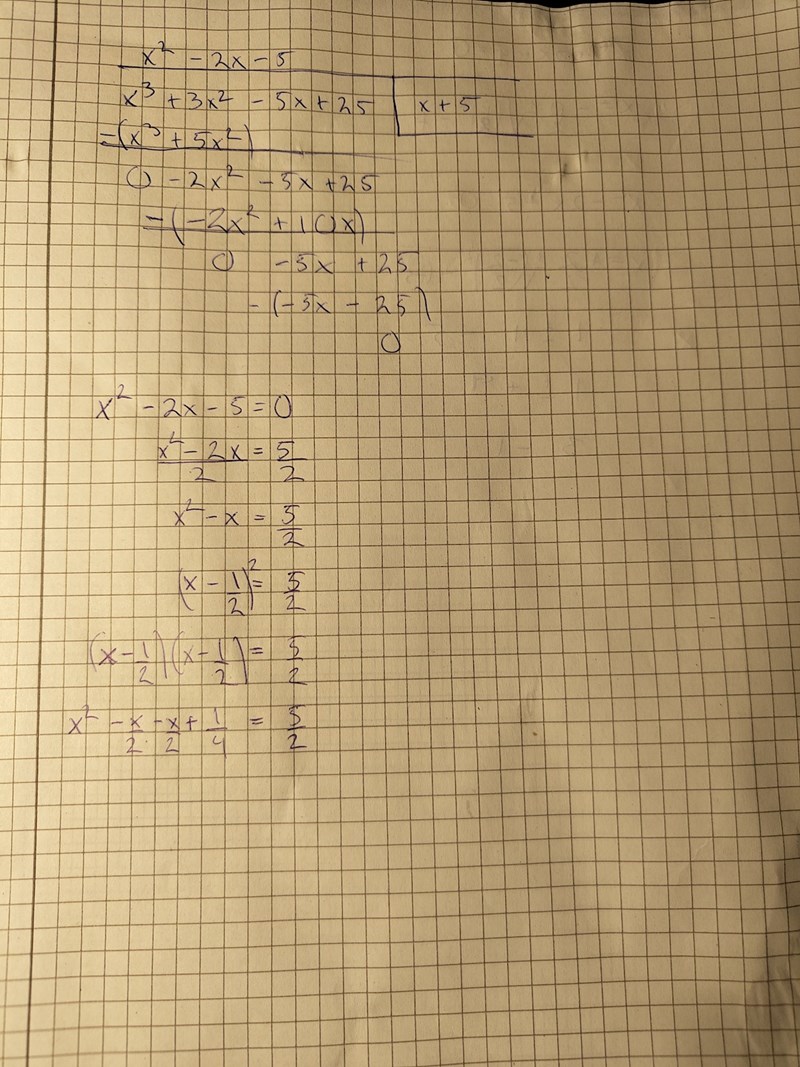 x² - 2x - 5
x³ + 3x² - 5x + 25 | x + 5
-(x³ + 5x²)
0 - 2x² - 5x + 25
-(-2x² + 10x)
0 - 5x + 25
-(-5x - 25)
0
x² - 2x - 5 = 0
(x² - 2x)/2 = 5/2
x² - x = 5/2
(x - 1/2)² = 5/2
(x - 1/2)(x - 1/2) = 5/2
x² - x/2 - x/2 + 1/4 = 5/2